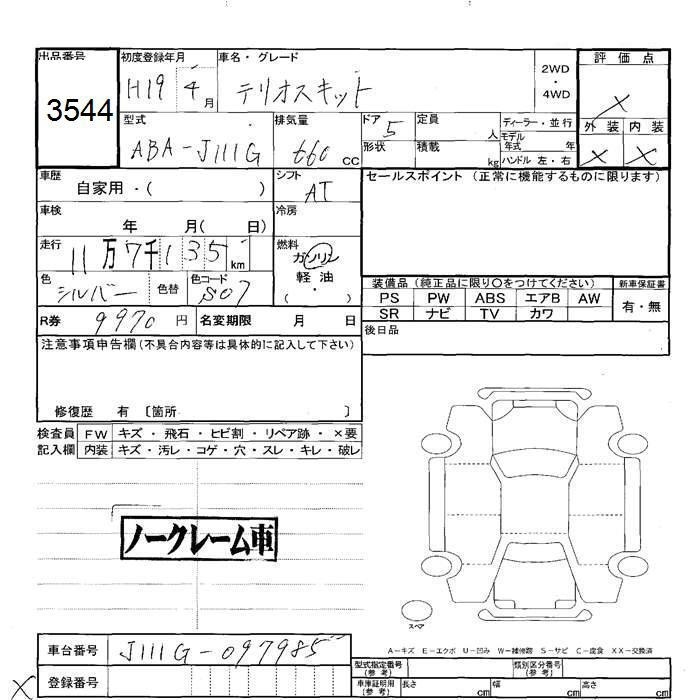 出品番号 初度登録年月 車名・グレード 2WD・4WD 評価点
3544 H19 4月 テリオスキット X
型式 排気量 ドア 定員 ディーラー・並行 外装 内装
ABA-J111G 660 cc 5 人 モデル年式 年 X X
形状 積載 kg ハンドル 左・右
車歴 自家用・( ) シフト AT セールスポイント (正常に機能するものに限ります)
車検 年 月( 日) 冷房
走行 11万7千135 km 燃料 ガソリン
軽油
( ・ )
色 シルバー 色替 色コード S07 装備品 (純正品に限り○をつけてください) 新車保証書
PS PW ABS エアB AW 有・無
R券 9970 円 名変期限 月 日 SR ナビ TV カワ
注意事項申告欄(不具合内容等は具体的に記入して下さい) 後日品
修復歴 有 〔箇所 〕
検査員 FW キズ・飛石・ヒビ割・リペア跡・×要
記入欄 内装 キズ・汚レ・コゲ・穴・スレ・キレ・破レ
ノークレーム車
スペア
A−キズ E−エクボ U−凹み W−補修跡 S−サビ C−腐食 XX−交換済
車台番号 J111G-097985
型式指定番号(参考) 類別区分番号(参考)
X 登録番号 車庫証明用(参考) 長さ cm 幅 cm 高さ cm